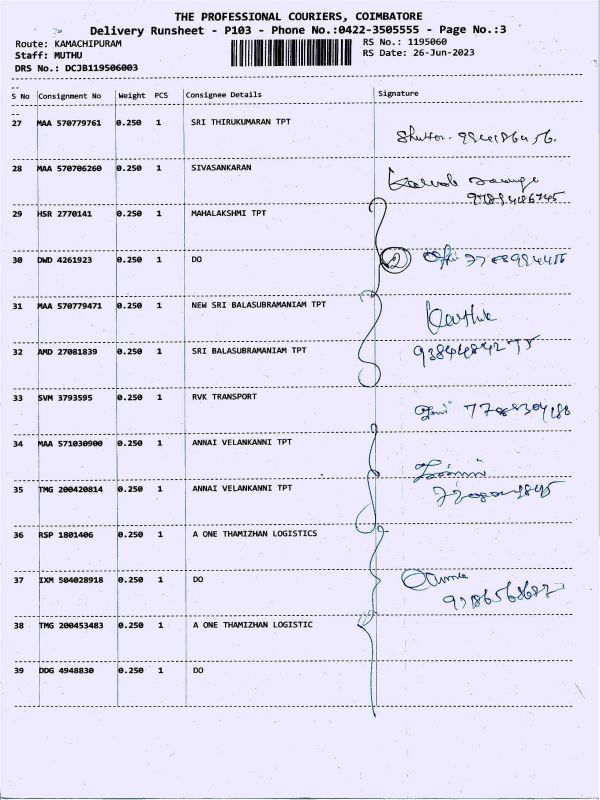 THE PROFESSIONAL COURIERS, COIMBATORE
Delivery Runsheet - P103 - Phone No.:0422-3505555 - Page No.:3
Route: KAMACHIPURAM
Staff: MUTHU
DRS No.: DCJB119506003
RS No.: 1195060
RS Date: 26-Jun-2023
S No Consignment No Weight PCS Consignee Details Signature
27 MAA 570779761 0.250 1 SRI THIRUKUMARAN TPT
28 MAA 570706260 0.250 1 SIVASANKARAN
29 HSR 2770141 0.250 1 MAHALAKSHMI TPT
30 DWD 4261923 0.250 1 DO 2
31 MAA 570779471 0.250 1 NEW SRI BALASUBRAMANIAM TPT Karthik
32 AMD 27081839 0.250 1 SRI BALASUBRAMANIAM TPT
33 SVM 3793595 0.250 1 RVK TRANSPORT
34 MAA 571030900 0.250 1 ANNAI VELANKANNI TPT
35 TMG 200420814 0.250 1 ANNAI VELANKANNI TPT
36 RSP 1801406 0.250 1 A ONE THAMIZHAN LOGISTICS
37 IXM 504028918 0.250 1 DO
38 TMG 200453483 0.250 1 A ONE THAMIZHAN LOGISTIC
39 DDG 4948830 0.250 1 DO